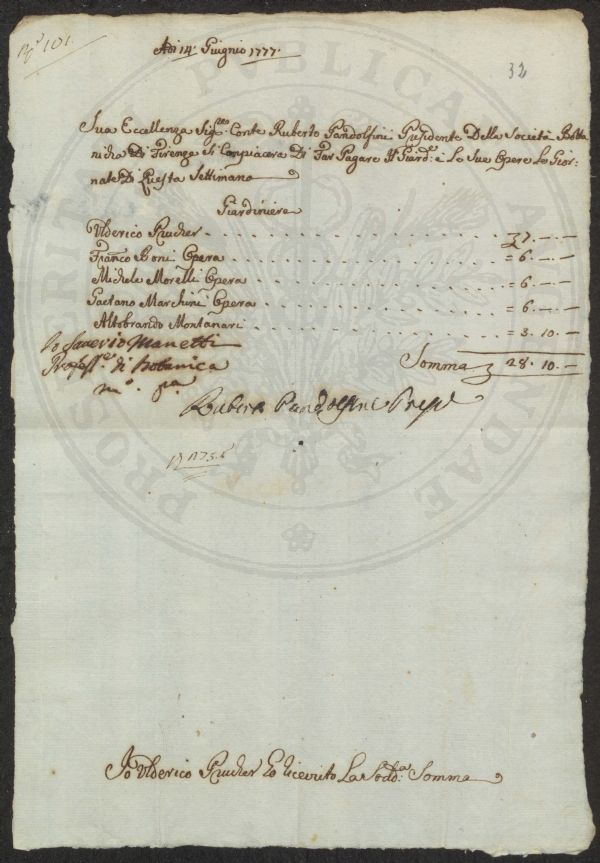 N.º 101.
Adi 14. Giugnio 1777.
32
Sua Eccellenza Sig.re Conte Ruberto Pandolfini Presidente Della Società Botta
nicha Di Firenze Si Conpiacerà Di Far Pagare Il Giard.e e Le Sue Opere Le Gior:
nate Di Questa Settimana
Giardiniere
Ulderico Prucher 7. — —
Franco Boni Opera = 6. — —
Michele Morelli Opera = 6. — —
Gaetano Marchini Opera = 6. — —
Aldobrando Montanari = 3. 10. —
Io Saverio Manetti
Profess.re di Botanica
m.o p.a
Somma 28. 10. —
Rubero Pandolfini Presid
PROSPERITATI PVBLICAE AVGENDAE
Io Ulderico Prucher Ho Ricevuto La Sodd.a Somma